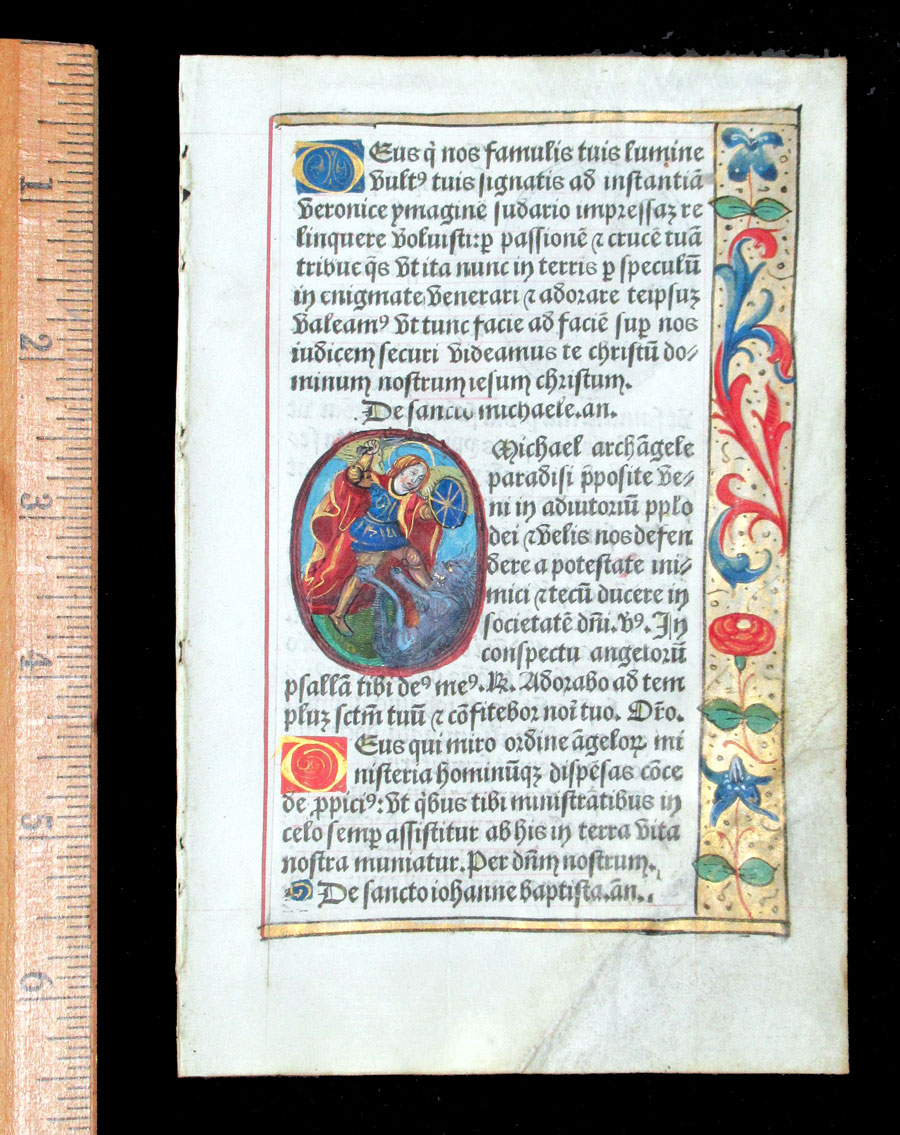 Eus q̄ nos famulis tuis lumine
vultꝰ tuis signatis ad instantiā
veronice ymaginē sudario impressaʒ re
linquere voluisti: ꝑ passionē ⁊ crucē tuā
tribue q̄s vt ita nunc in terris ꝑ speculū
in enigmate venerari ⁊ adorare teipsuʒ
valeamꝰ vt tunc facie ad faciē suꝑ nos
iudicem securi videamus te christū do⸗
minum nostrum iesum christum.
De sancto michaele. an.
Michael archāgele
paradisi p̄posite ve⸗
ni in adiutoriū pplo
dei ⁊ velis nos defen
dere a potestate ini⸗
mici ⁊ tecū ducere in
societatē dñi. vꝰ. In
conspectu angelorū
psallā tibi deꝰ meꝰ. ℟. Adorabo ad tem
pluʒ sctm̄ tuū ⁊ cōfitebor noi tuo. Or̄o.
Eus qui miro ordine āgeloꝝ mi
nisteria hominūqʒ dispēsas cōce
de ꝓpiciꝰ: vt q̄bus tibi ministrātibus in
celo semꝑ assistitur ab his in terra vita
nostra muniatur. Per dn̄m nostrum.
De sancto iohanne baptista. an.
1
2
3
4
5
6